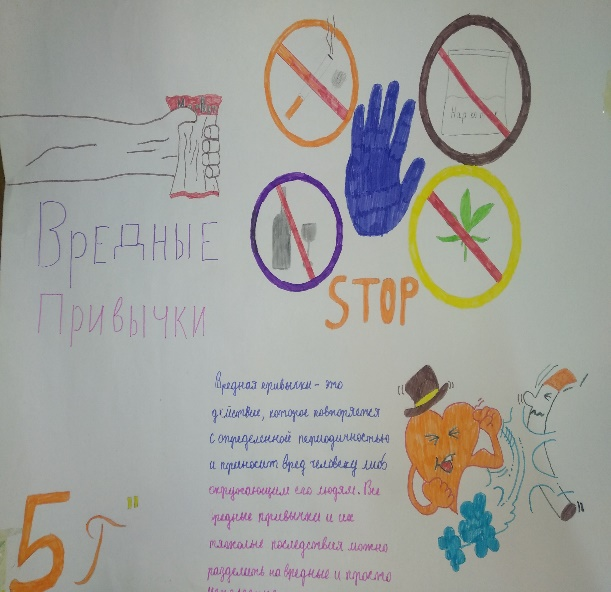 Вредные
Привычки
STOP
Вредная привычка - это
действие, которое повторяется
с определенной периодичностью
и приносит вред человеку либо
окружающим его людям. Все
вредные привычки и их
тяжелые последствия можно
разделить на вредные и просто
5 Г"